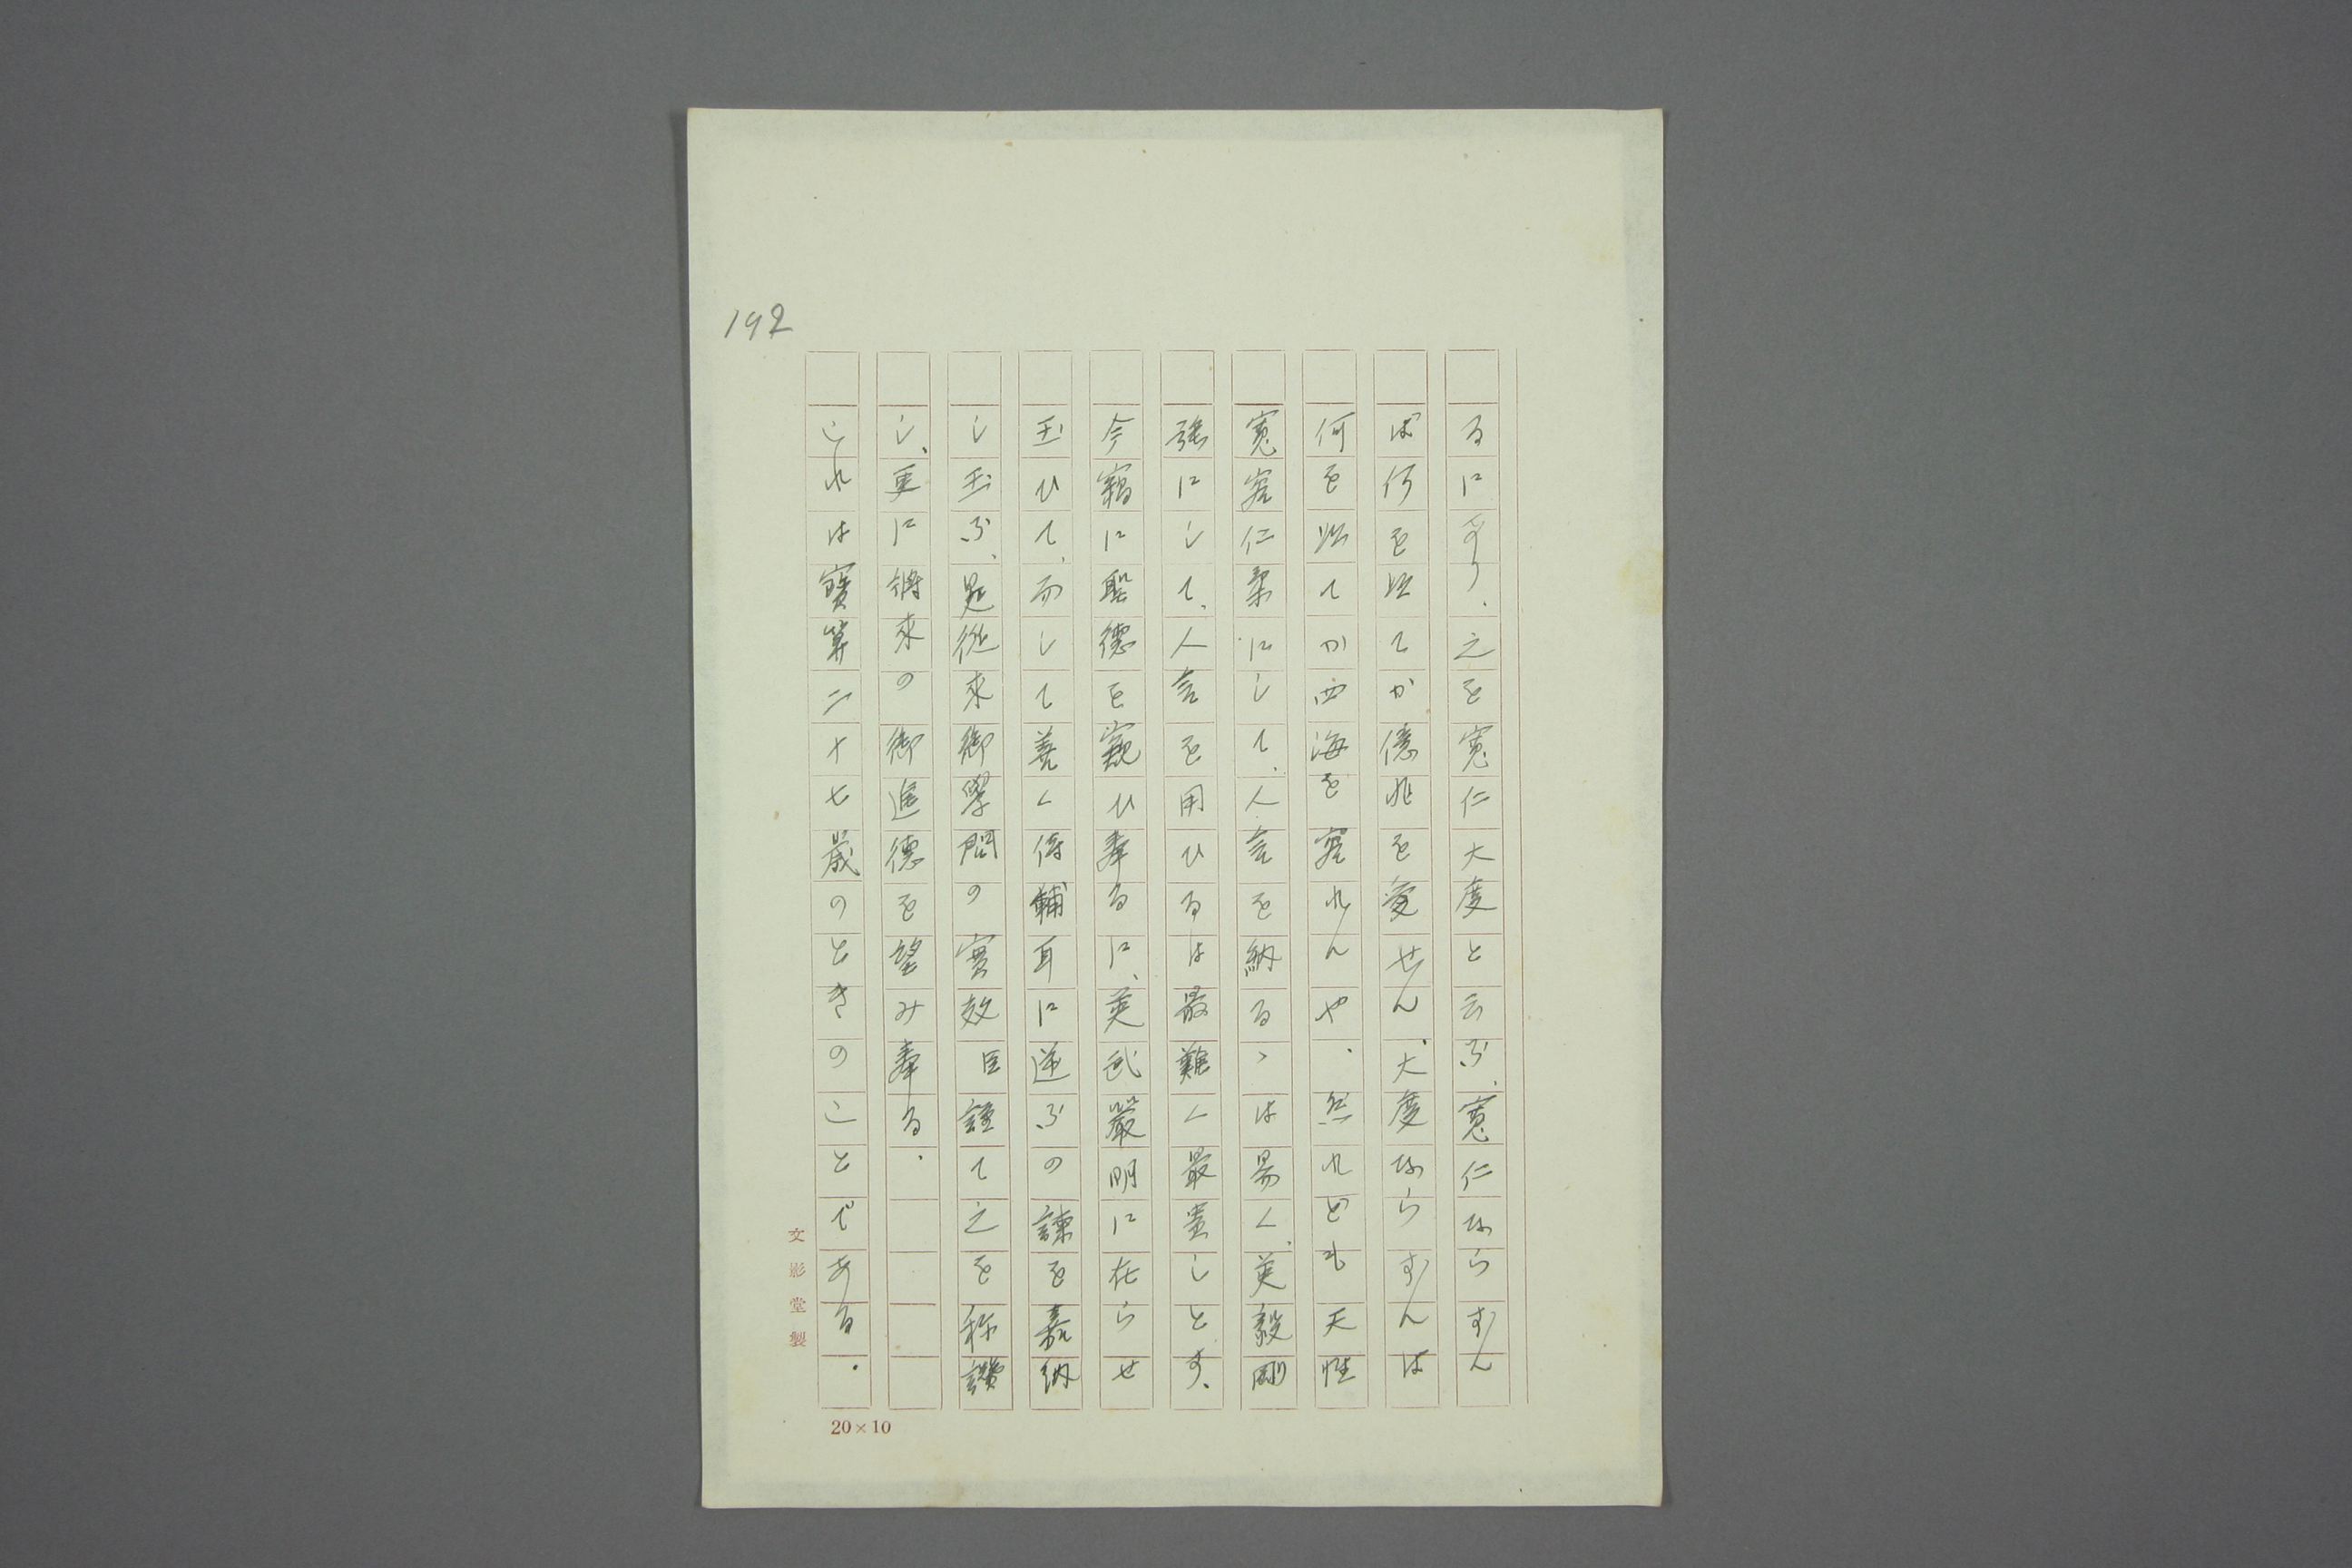 192
るに至り、之を寛仁大度と云ふ、寛仁ならずん
ば何を以てか億兆を愛せん、大度ならずんば
何を以てか四海を容れんや。然れども天性
寛容仁柔にして、人言を納るゝは易く、英毅剛
強にして、人言を用ひるは最難く最貴しとす、
今竊に聖徳を窺ひ奉るに、英武嚴明に在らせ
玉ひて、而して善く侍輔耳に逆ふの諫を嘉納
し玉ふ、是從來御學問の實效臣謹て之を称讃
し、更に將來の御進徳を望み奉る。
これは寶算二十七歳のときのことである。
文影堂製
20×10